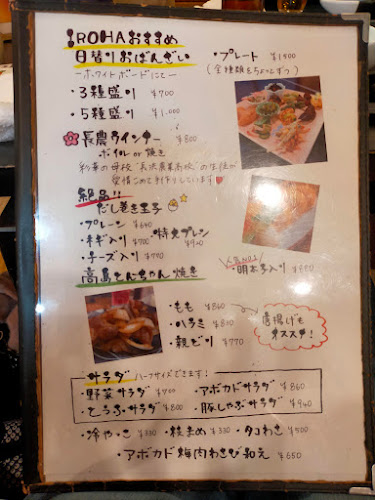 IROHAおすすめ
日替りおばんざい
ーホワイトボードにてー
・3種盛り ¥700
・5種盛り ¥1,000
・プレート ¥1400
(全種類をちょっとずつ)
長農ウインナー ¥800
ボイル or 焼き
彩華の母校 "長浜農業高校"の生徒が
愛情こめて手作りしています
絶品!!
だし巻き玉子
・プレーン ¥640
・ネギ入り ¥700
・チーズ入り ¥770
・特大プレーン ¥900
人気NO.1
・明太子入り ¥850
高島とんちゃん焼き
・もも ¥840
・ハラミ ¥840
・親どり ¥770
唐揚げも
オススメ!
サラダ ハーフサイズできます!
・野菜サラダ ¥700 ・アボカドサラダ ¥860
・とうふサラダ ¥800 ・豚しゃぶサラダ ¥940
・冷やっこ ¥330 ・枝まめ ¥330 ・タコわさ ¥500
・アボカド梅肉わさび和え ¥650